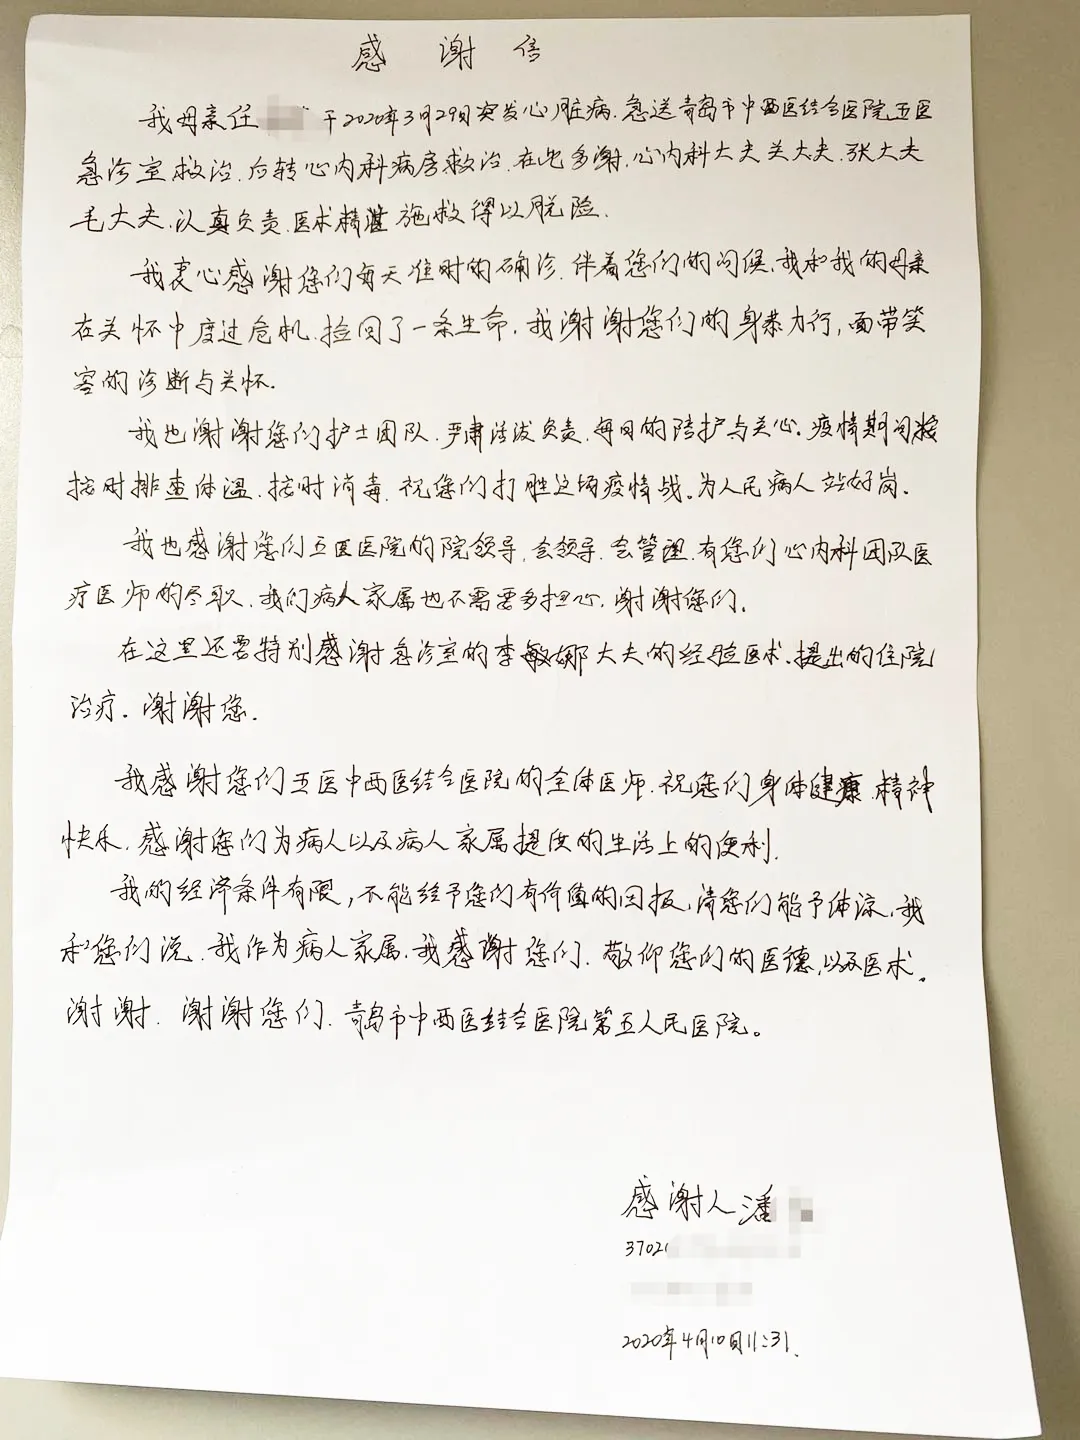 感谢信
我母亲任 于2020年3月29日突发心脏病.急送青岛市中西医结合医院五医
急诊室救治.后转心内科病房救治.在此多谢.心内科大夫关大夫.张大夫
毛大夫.认真负责.医术精湛施救得以脱险.
我衷心感谢您们每天准时的确诊.伴着您们的问候.我和我的母亲
在关怀中度过危机.捡回了一条生命.我谢谢您们的身恭力行,面带笑
容的诊断与关怀.
我也谢谢您们护士团队.严肃活泼负责.每日的陪护与关心.疫情期间
按时排查体温.按时消毒.祝您们打胜这场疫情战.为人民病人站好岗.
我也感谢您们五医医院的院领导,会领导.会管理.有您们心内科团队医
疗医师的尽职.我们病人家属也不需要多担心.谢谢您们.
在这里还要特别感谢急诊室的李敏娜大夫的经验医术.提出的住院
治疗.谢谢您.
我感谢您们五医中西医结合医院的全体医师.祝您们身体健康.精神
快乐.感谢您们为病人以及病人家属提供的生活上的便利.
我的经济条件有限,不能给予您们有价值的回报,请您们能予体谅.我
和您们说.我作为病人家属.我感谢您们.敬仰您们的医德,以及医术.
谢谢.谢谢您们.青岛市中西医结合医院第五人民医院。
感谢人潘
3702
2020年4月10日11:31.